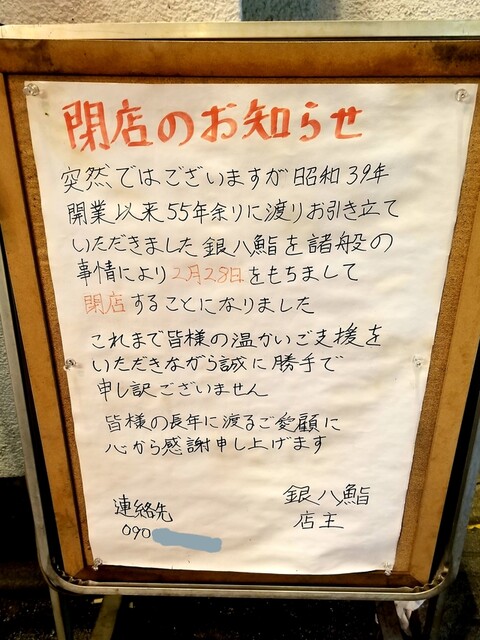 閉店のお知らせ
突然ではございますが昭和39年
開業以来55年余りに渡りお引き立て
いただきました銀八鮨を諸般の
事情により2月28日をもちまして
閉店することになりました
これまで皆様の温かいご支援を
いただきながら誠に勝手で
申し訳ございません
皆様の長年に渡るご愛顧に
心から感謝申し上げます
銀八鮨
店主
連絡先
090